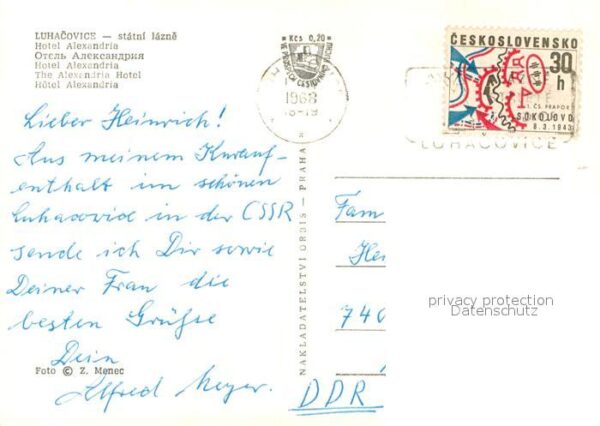 LUHAČOVICE — státní lázně
Hotel Alexandria
Отель Александрия
Hotel Alexandria
The Alexandria Hotel
Hôtel Alexandria
Lieber Heinrich!
Aus meinem Kurauf-
enthalt im schönen
Luhačovice in der ČSSR
sende ich Dir sowie
Deiner Frau die
besten Grüße
Dein
Alfred Meyer.
Foto © Z. Menec
NAKLADATELSTVÍ ORBIS — PRAHA
Kčs 0,20
1968
ČESKOSLOVENSKO
30
h
1. ČS. PRAPOR
SOKOLOVO
8.3.1943
LUHAČOVICE
Fam
Hei
740
DDR
privacy protection
Datenschutz